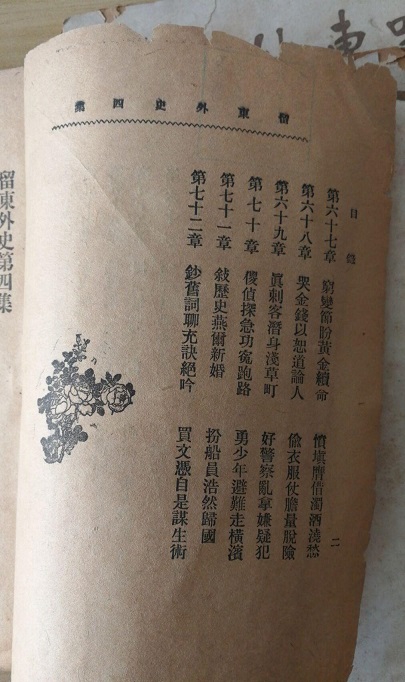 留東外史四集
目錄
二
第六十七章 窮變節盼黃金續命 憤塡膺借濁酒澆愁
第六十八章 哭金錢以恕道論人 偸衣服仗膽量脫險
第六十九章 眞刺客潛身淺草町 好警察亂拿嫌疑犯
第七十章 傻偵探急功寃跑路 勇少年避難走橫濱
第七十一章 敍歷史燕爾新婚 扮船員浩然歸國
第七十二章 鈔舊詞聊充訣絕吟 買文憑自是謀生術
留東外史第四集